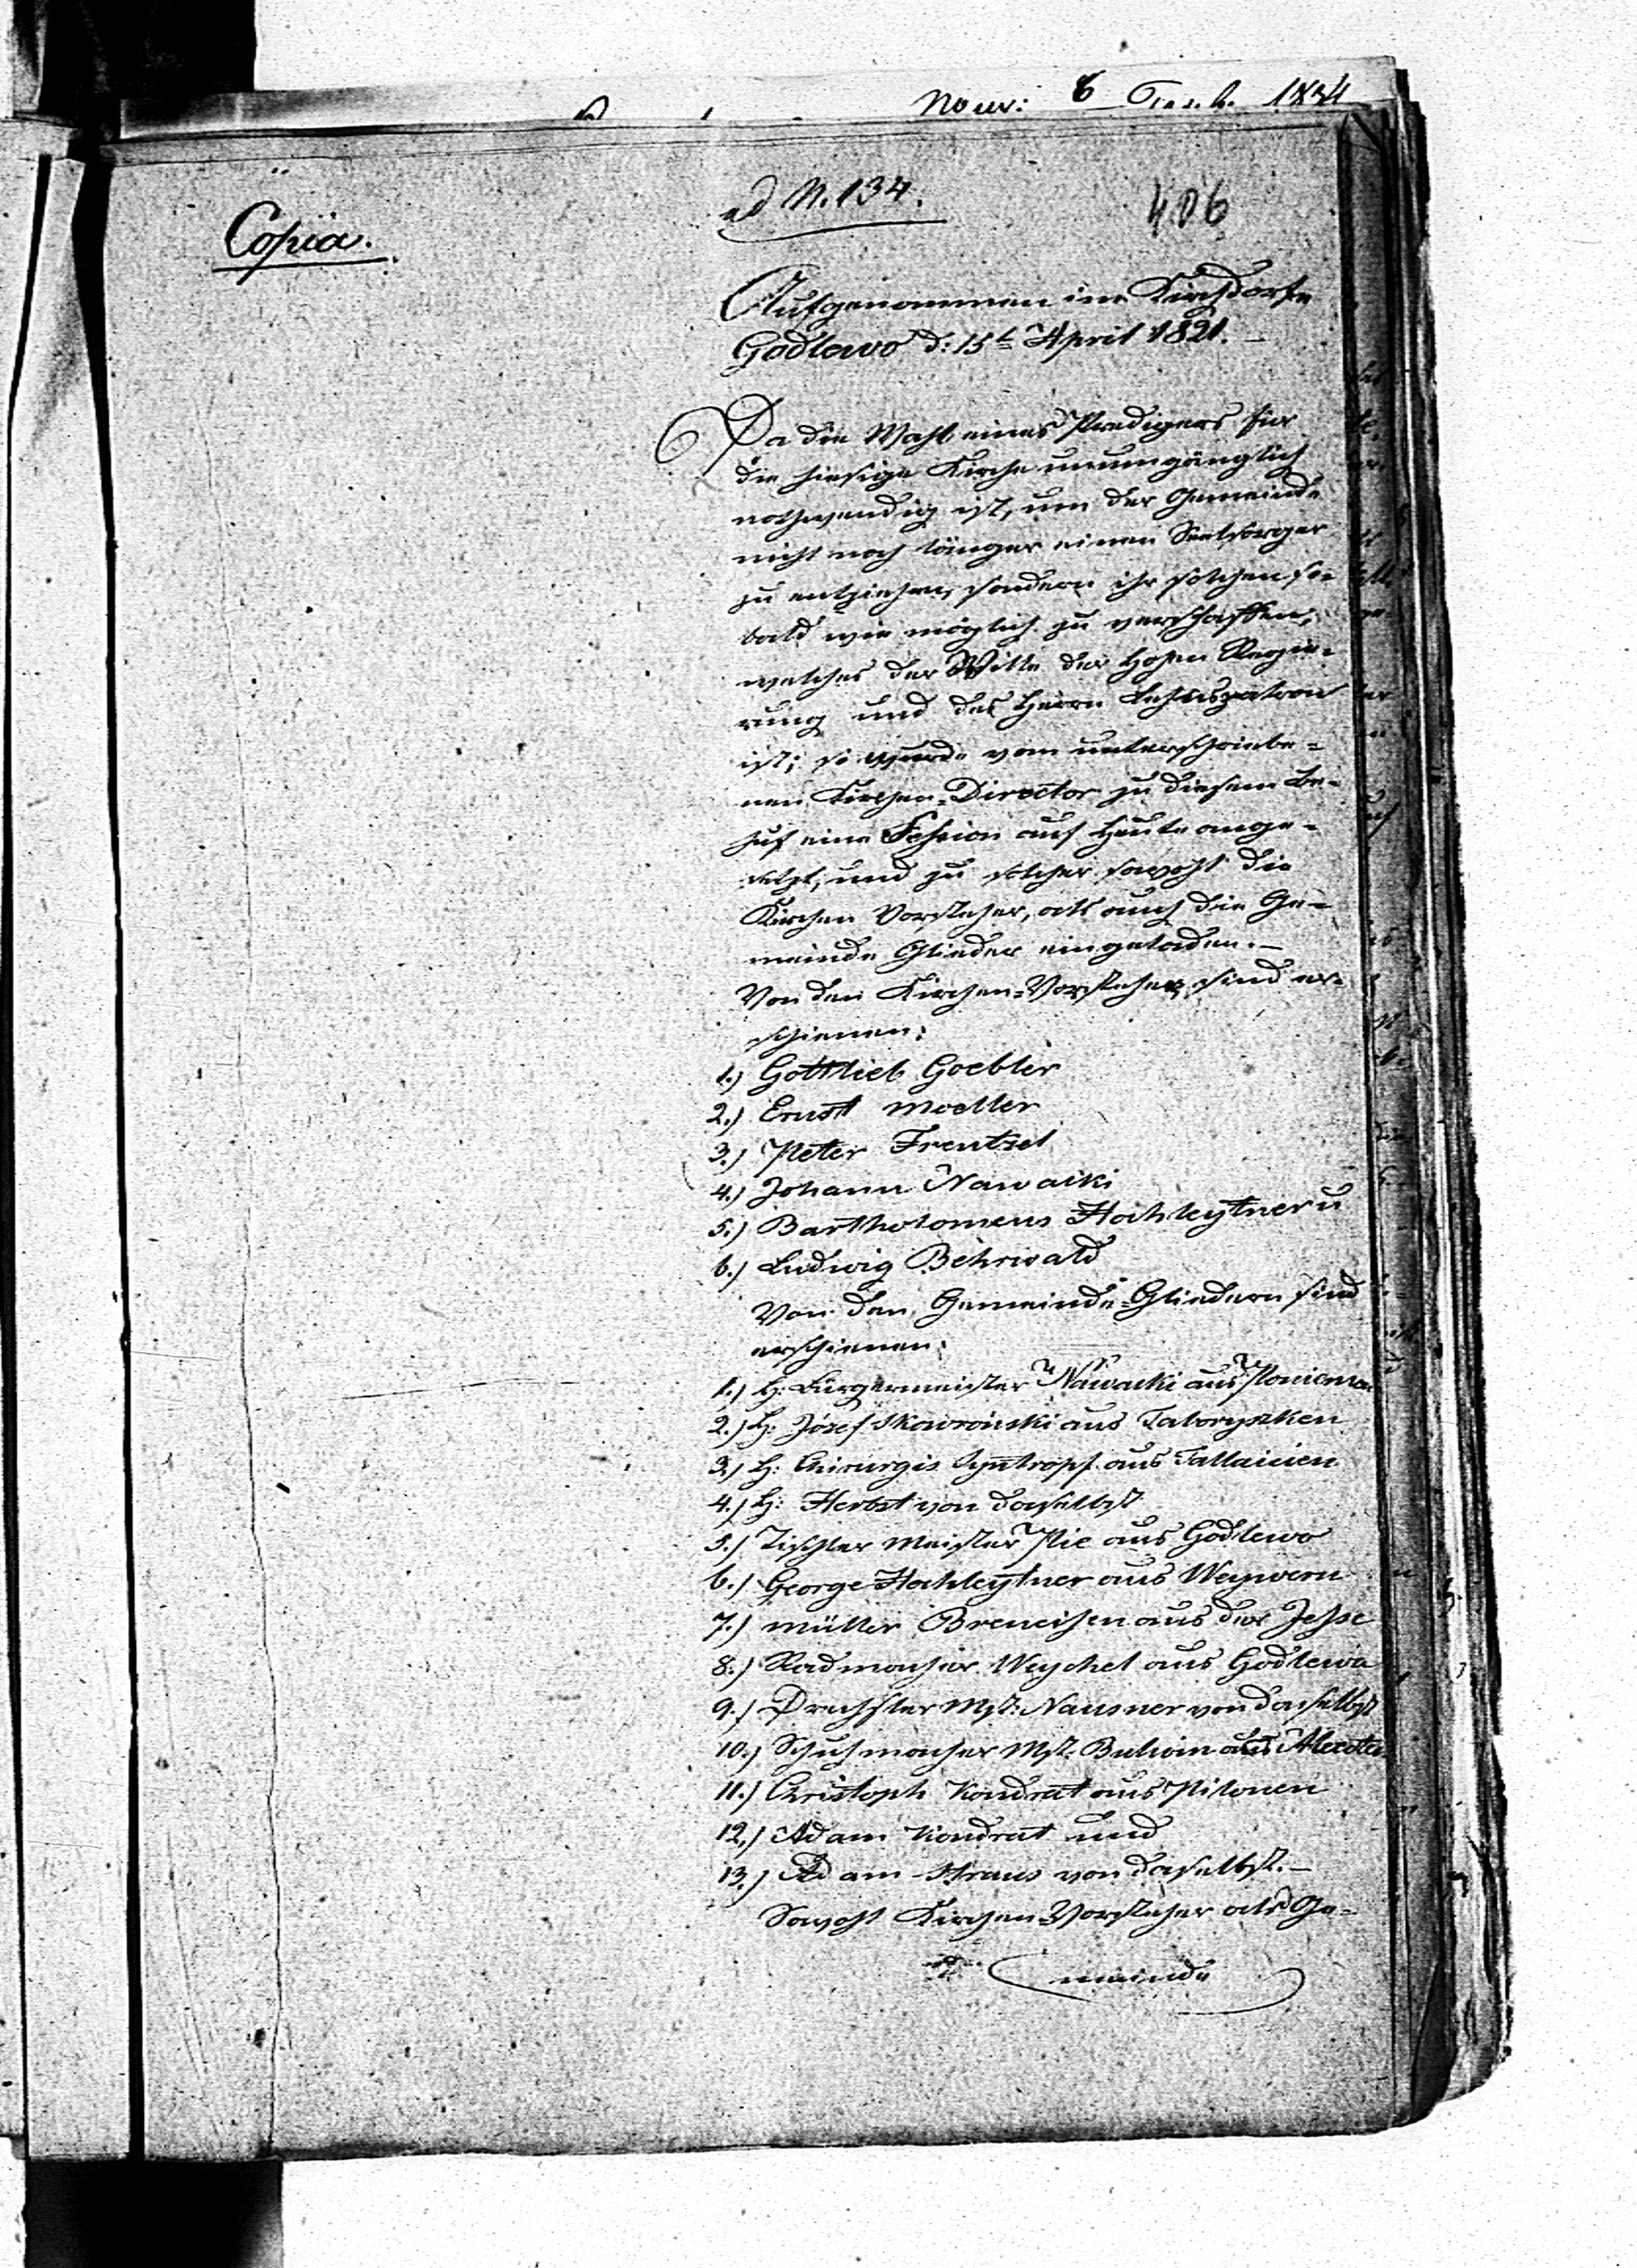 Nowr: 6 1834
ad N. 134.
406
Copia.
Aufgenommen im Kirchdorfe
Godlewo d: 15t April 1821.–
Da die Wahl eines Predigers für
die hiesige Kirche unumgänglich
nothwendig ist, um der Gemeinde
nicht noch länger einen Seelsorger
zu entziehen, sondern ihr solchen so-
bald wie möglich zu verschaffen,
welches der Wille der hohen Regie-
rung und des Herrn Lehnspatron
ist; so wurde vom unterschriebe=
nen Kirchen=Director zu diesem Be-
huf eine Session auf heute ange=
setzt, und zu solcher sowohl die
Kirchen Vorsteher, als auch die Ge=
meinde Glieder eingeladen.–
Von den Kirchen=Vorsteher sind er-
schienen:
1.) Gottlieb Goebler
2.) Ernst Moeller
3.) Peter Frentzel
4.) Johann Nawacki
5.) Bartholomeus Hochleytner u
6.) Ludwig Behrwald
Von den Gemeinde=Gliedern sind
erschienen:
1.) H: Bürgermeister Nawacki aus
2.) H: Józef Skawroński aus Taboryszken
3.) H: Chirurgis aus
4.) H: Herbst von daselbst
5.) Tischler Meister Pie aus Godlewo
6.) George Hochleytner aus Weywern
7.) Müller Breneisen aus der Jesse
8.) Radmacher Weychel aus Godlewa
9.) Drechsler Mst: Nausner von daselbst
10.) Schuhmacher Mst: aus
11.) Christoph Kondrat aus Pilonen
12.) Adam Kondrat und
13.) Adam Straus von daselbst.–
Sowohl Kirchen=Vorsteher als Ge=
meinde